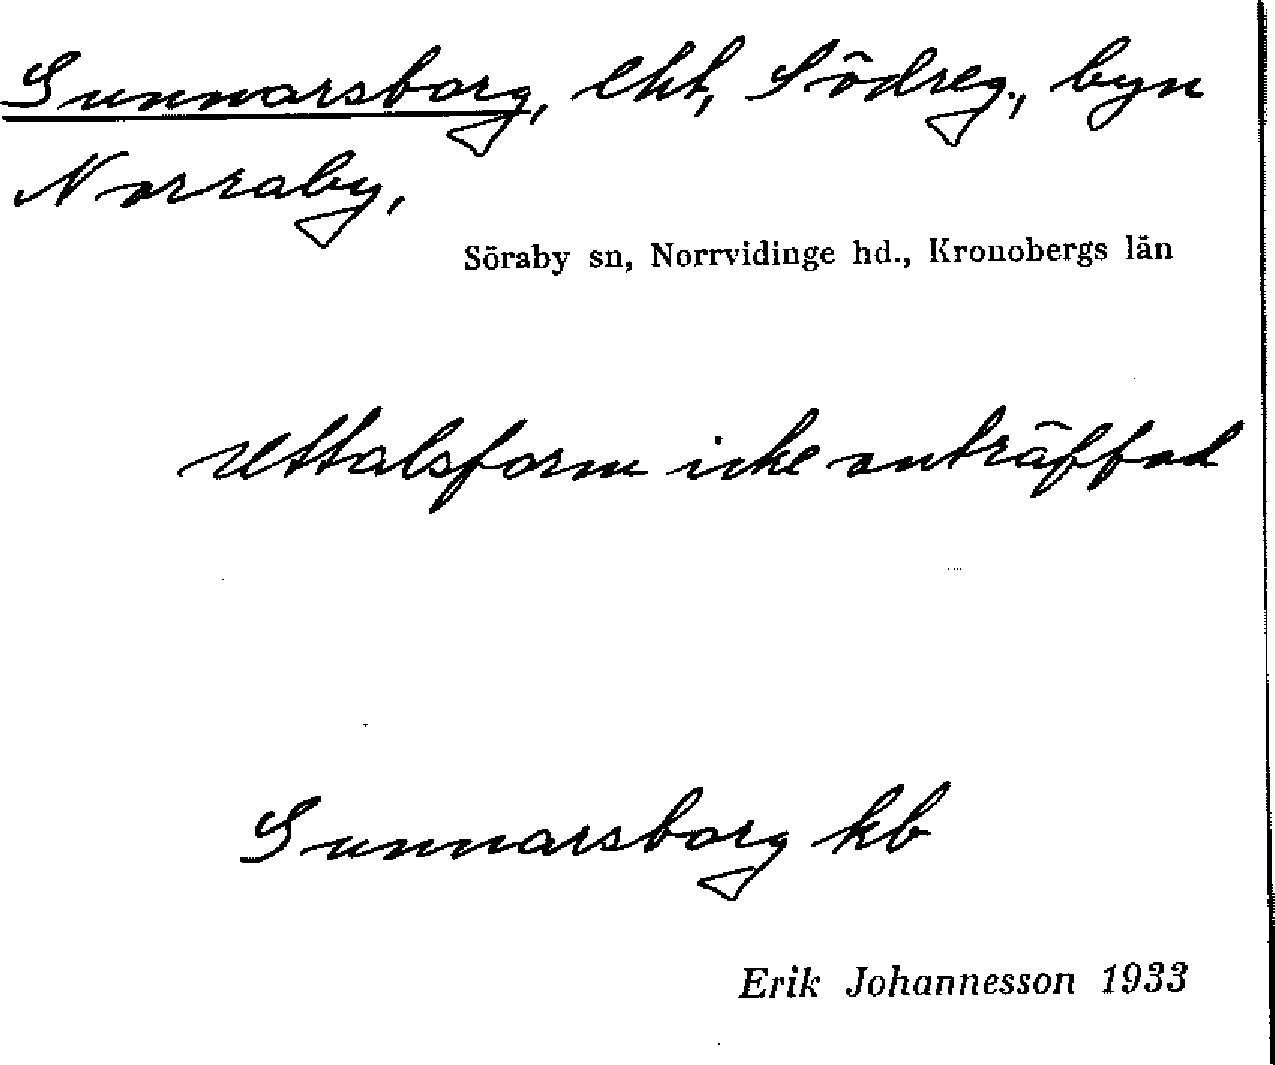 Gunnarsborg, lht, Södreg., byn
Norraby,
Söraby sn, Norrvidinge hd., Kronobergs län
Uttalsform icke anträffad
Gunnarsborg kb
Erik Johannesson 1933